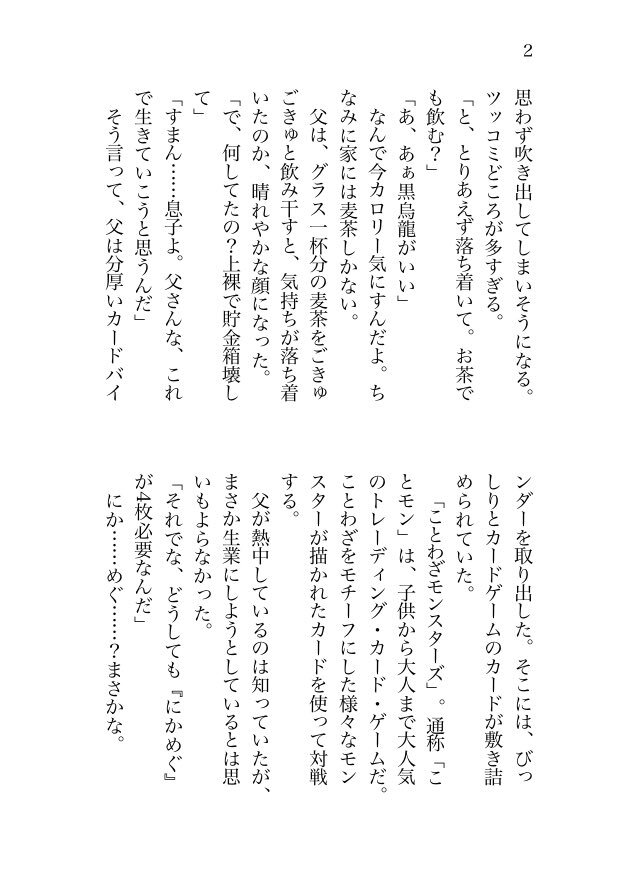 2
思わず吹き出してしまいそうになる。
ツッコミどころが多すぎる。
「と、とりあえず落ち着いて。お茶で
も飲む？」
「あ、あぁ黒烏龍がいい」
なんで今カロリー気にすんだよ。ち
なみに家には麦茶しかない。
父は、グラス一杯分の麦茶をごきゅ
ごきゅと飲み干すと、気持ちが落ち着
いたのか、晴れやかな顔になった。
「で、何してたの？上裸で貯金箱壊し
て」
「すまん……息子よ。父さんな、これ
で生きていこうと思うんだ」
そう言って、父は分厚いカードバイ
ンダーを取り出した。そこには、びっ
しりとカードゲームのカードが敷き詰
められていた。
「ことわざモンスターズ」。通称「こ
とモン」は、子供から大人まで大人気
のトレーディング・カード・ゲームだ。
ことわざをモチーフにした様々なモン
スターが描かれたカードを使って対戦
する。
父が熱中しているのは知っていたが、
まさか生業にしようとしているとは思
いもよらなかった。
「それでな、どうしても『にかめぐ』
が4枚必要なんだ」
にか……めぐ……？まさかな。